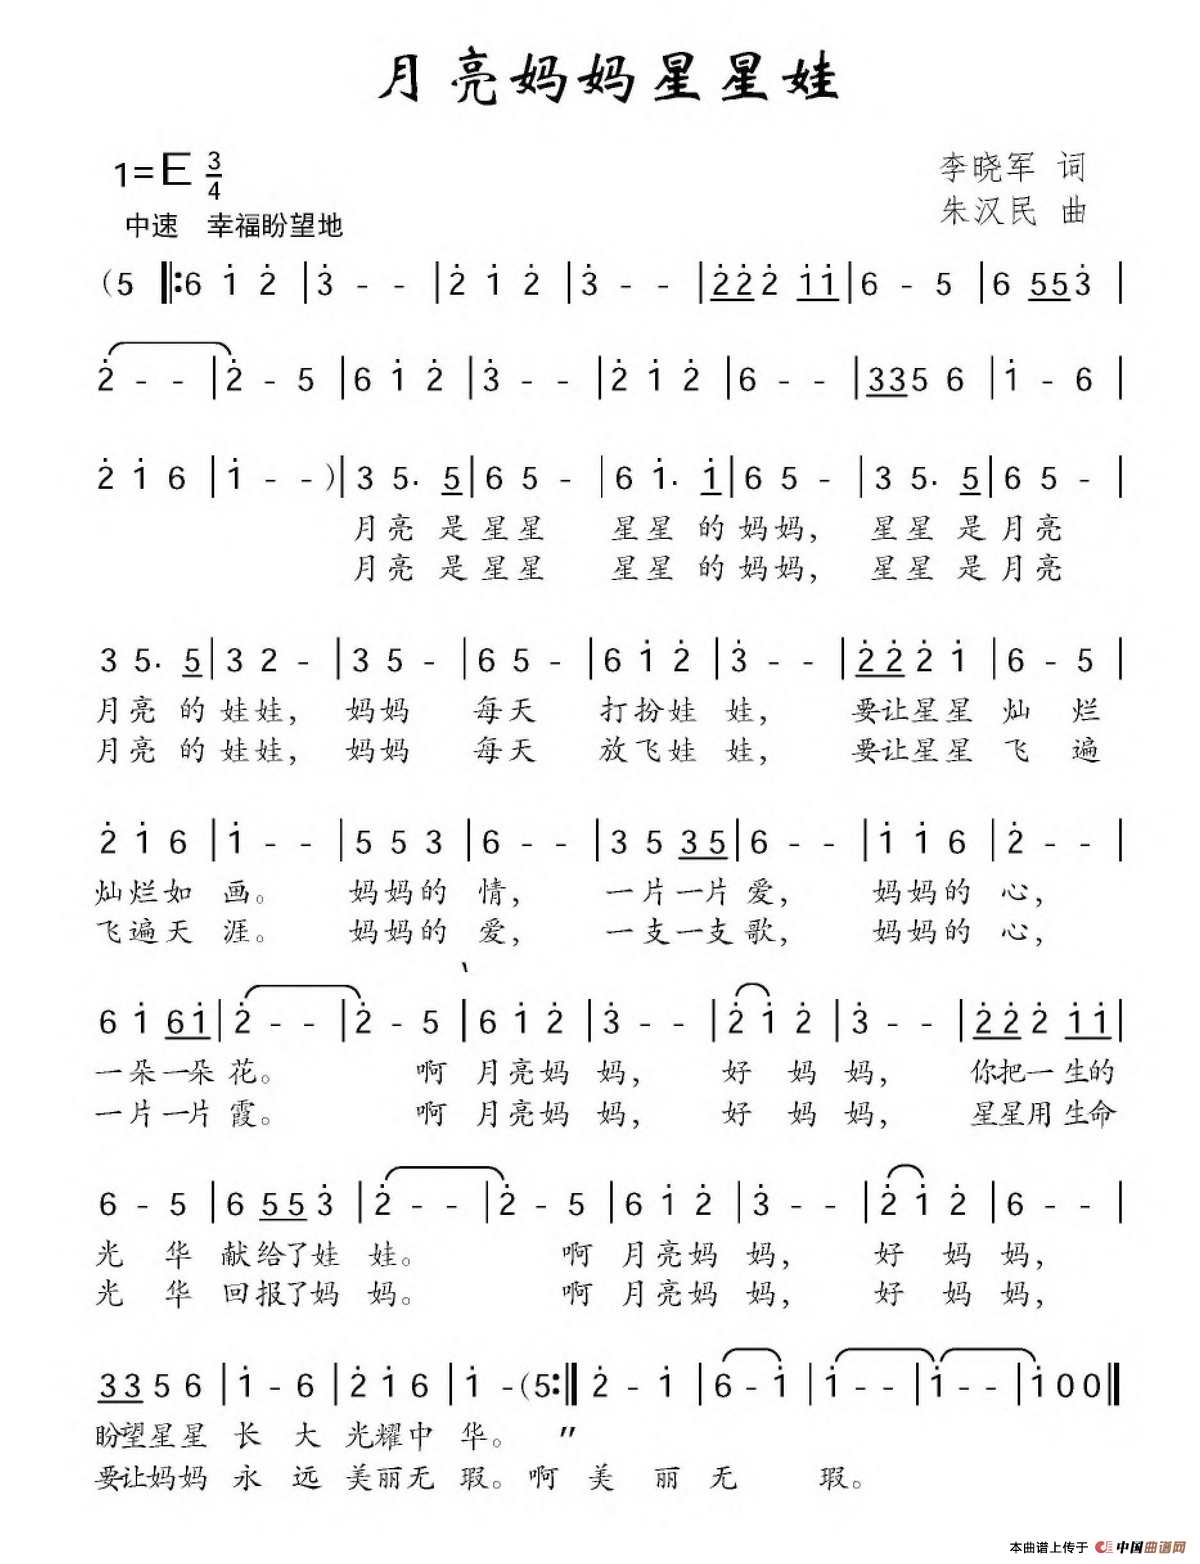 月亮妈妈星星娃
1=E 3/4
李晓军 词
中速 幸福盼望地
朱汉民 曲
(5 ‖:6 1̇ 2̇ |3̇ - - |2̇ 1̇ 2̇ |3̇ - - |2̲̇2̲̇2̇ 1̲̇1̲̇|6 - 5 |6 5̲5̲3̇ |
2̇ - - |2̇ - 5 |6 1̇ 2̇ |3̇ - - |2̇ 1̇ 2̇ |6 - - |3̲3̲5 6 |1̇ - 6 |
2̇ 1̇ 6 |1̇ - -)|3 5. 5̲|6 5 - |6 1̇. 1̲̇|6 5 - |3 5. 5̲|6 5 - |
月亮 是星星 星星 的妈妈, 星星 是月亮
月亮 是星星 星星 的妈妈, 星星 是月亮
3 5. 5̲|3 2 - |3 5 - |6 5 - |6 1̇ 2̇ |3̇ - - |2̲̇2̲̇2̇ 1̇ |6 - 5 |
月亮 的娃娃, 妈妈 每天 打扮娃 娃, 要让星星 灿 烂
月亮 的娃娃, 妈妈 每天 放飞娃 娃, 要让星星 飞 遍
2̇ 1̇ 6 |1̇ - - |5 5 3 |6 - - |3 5 3̲5̲|6 - - |1̇ 1̇ 6 |2̇ - - |
灿烂如 画。 妈妈的 情, 一片一片 爱, 妈妈的 心,
飞遍天 涯。 妈妈的 爱, 一支一支 歌, 妈妈的 心,
6 1̇ 6̲1̲̇|2̇ - - |2̇ - 5 |6 1̇ 2̇ |3̇ - - |2̇ 1̇ 2̇ |3̇ - - |2̲̇2̲̇2̇ 1̲̇1̲̇|
一朵一朵 花。 啊 月亮妈 妈, 好 妈 妈, 你把一生的
一片一片 霞。 啊 月亮妈 妈, 好 妈 妈, 星星用生命
6 - 5 |6 5̲5̲3̇ |2̇ - - |2̇ - 5 |6 1̇ 2̇ |3̇ - - |2̇ 1̇ 2̇ |6 - - |
光 华 献给了娃 娃。 啊 月亮妈 妈, 好 妈 妈,
光 华 回报了妈 妈。 啊 月亮妈 妈, 好 妈 妈,
3̲3̲5 6 |1̇ - 6 |2̇ 1̇ 6 |1̇ -(5:‖2̇ - 1̇ |6 - 1̇ |1̇ - - |1̇ - - |1̇ 0 0‖
盼望星星 长 大 光耀中 华。 〃
要让妈妈 永 远 美丽无 瑕。啊 美 丽 无 瑕。
本曲谱上传于 中国曲谱网